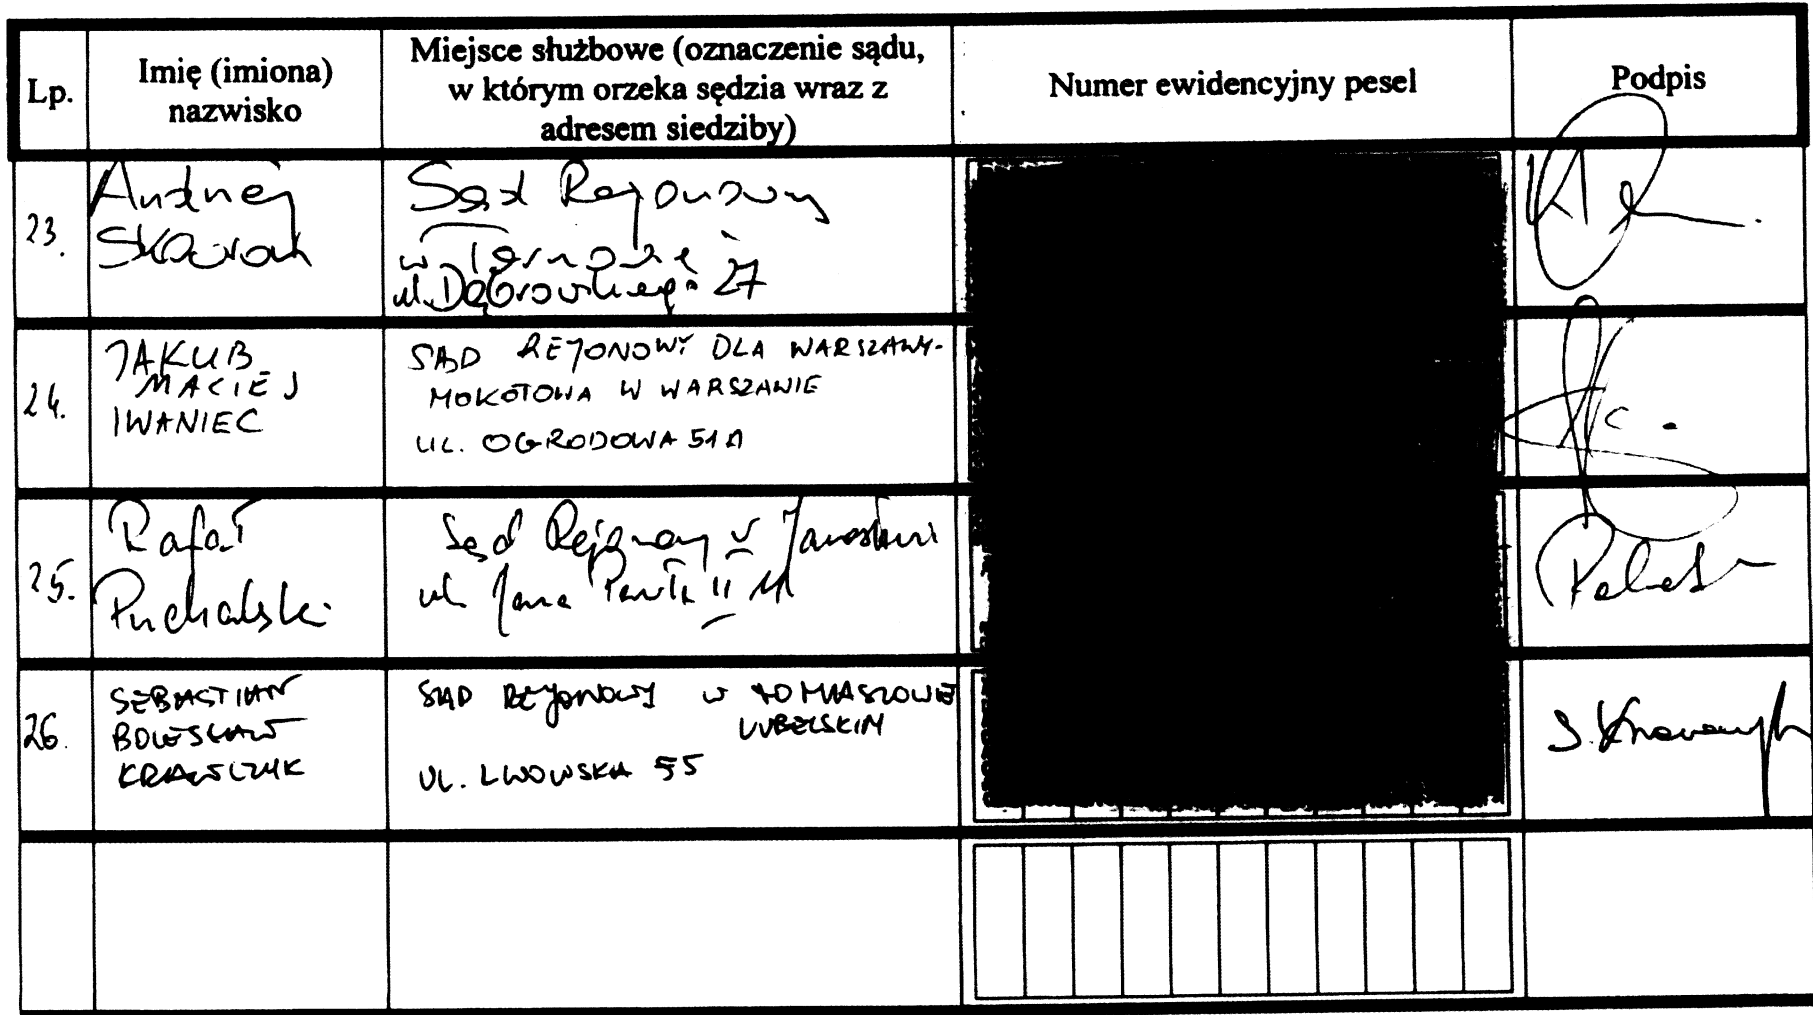 Lp.
Imię (imiona)
nazwisko
Miejsce służbowe (oznaczenie sądu,
w którym orzeka sędzia wraz z
adresem siedziby)
Numer ewidencyjny pesel
Podpis
23.
Andrzej
Skowron
Sąd Rejonowy
w Tarnowie
ul. Dąbrowskiego 27
24.
JAKUB
MACIEJ
IWANIEC
SĄD REJONOWY DLA WARSZAWY-
MOKOTOWA W WARSZAWIE
UL. OGRODOWA 51A
25.
Rafał
Puchalski
Sąd Rejonowy w Jarosławiu
ul. Jana Pawła II 11
26.
SEBASTIAN
BOLESŁAW
KRAWCZYK
SĄD REJONOWY W TOMASZOWIE
LUBELSKIM
UL. LWOWSKA 55
S. Krawczyk